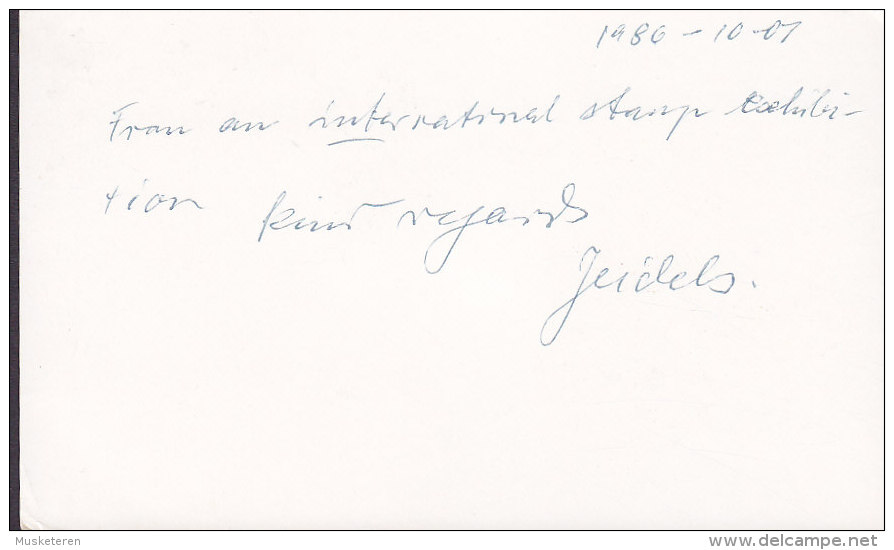 1986-10-01
From an international stamp exhibi-
tion kind regards
Jeidels.
Musketeren
delcampe.net